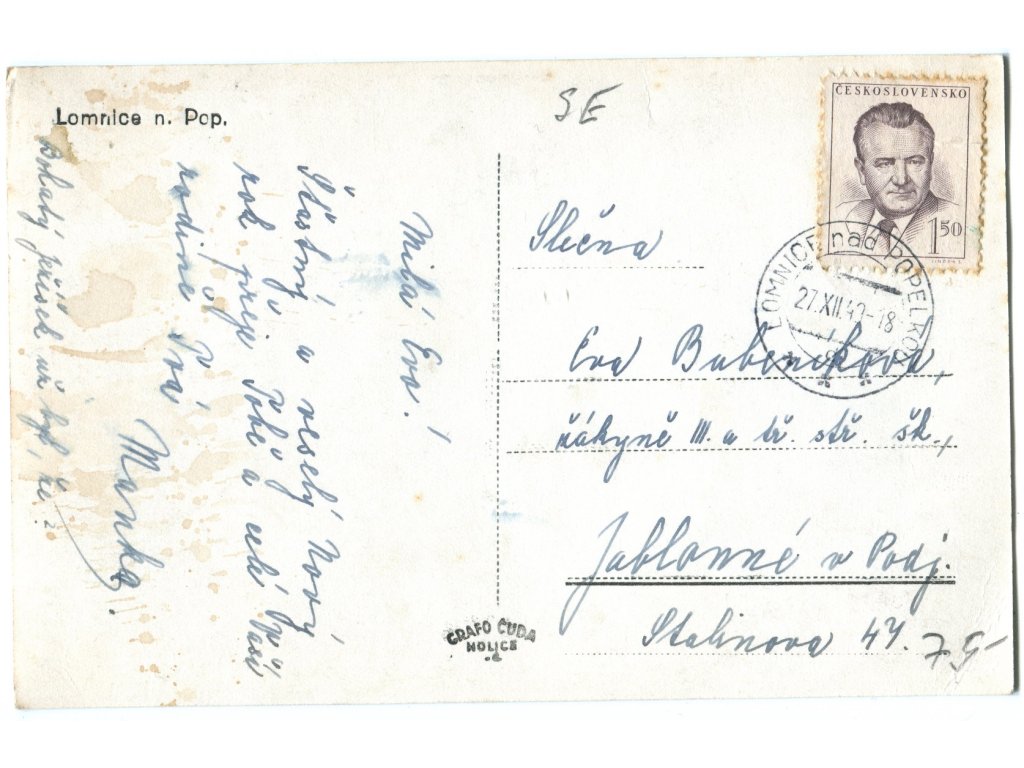 Lomnice n. Pop.
SE
ČESKOSLOVENSKO
1 50
LOMNICE nad POPELKOU
27.XII.49-18
Milá Evo!
Šťastný a veselý Nový
rok přeje Tobě a celé Vaší
rodině Tvá
Manka.
Bohatý ježíšek už byl, že?
Slečna
Eva Bubeníková,
žákyně III. a tř. stř. šk.,
Jablonné v Podj.
Stalinova 47.
GRAFO ČUDA
HOLICE